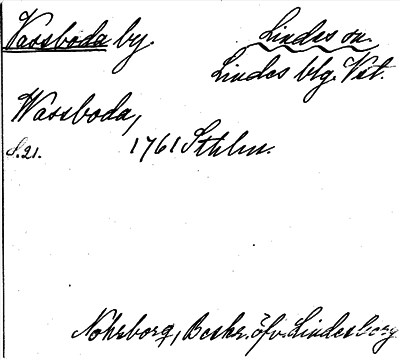 Vassboda by. Lindes sn.
Lindes blg. Vst.
Wassboda,
s. 21. 1761 Sthlm.
Nohrborg, Beskr. öfv. Lindesberg